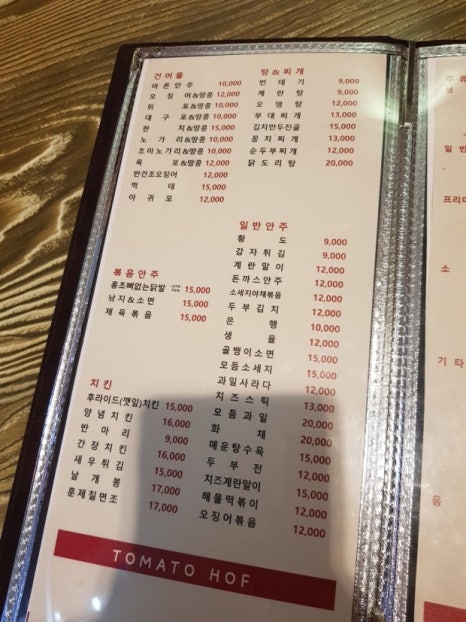 건어물
마른안주 10,000
오징어&땅콩 12,000
쥐포&땅콩 10,000
대구포&땅콩 10,000
한치&땅콩 15,000
노가리&땅콩 10,000
조미노가리&땅콩 10,000
육포&땅콩 12,000
반건조오징어 12,000
먹태 15,000
아귀포 12,000
볶음안주
홍초뼈없는닭발 15,000
낙지&소면 15,000
제육볶음 15,000
치킨
후라이드(깻잎)치킨 15,000
양념치킨 16,000
반마리 9,000
간장치킨 16,000
새우튀김 15,000
날개봉 17,000
훈제칠면조 17,000
탕&찌개
번데기 9,000
계란탕 9,000
오뎅탕 12,000
부대찌개 13,000
김치만두전골 15,000
꽁치찌개 13,000
순두부찌개 12,000
닭도리탕 20,000
일반안주
황도 9,000
감자튀김 9,000
계란말이 12,000
돈까스안주 12,000
소세지야채볶음 12,000
두부김치 12,000
은행 10,000
생율 12,000
골뱅이소면 15,000
모듬소세지 15,000
과일사라다 12,000
치즈스틱 13,000
모듬과일 20,000
화채 20,000
매운탕수육 15,000
두부전 12,000
치즈계란말이 15,000
해물떡볶이 12,000
오징어볶음 12,000
TOMATO HOF
주류
생
일반
프리미
소
기타
음